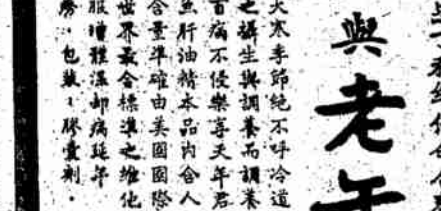 與老年
大寒季節絕不呼冷道
之攝生與調養而調養
百病不侵樂享天年君
魚肝油精本品內含人
含量準確由美國國際
世界最合標準之維他
服增體溫卻病延年
包裝：膠囊劑。